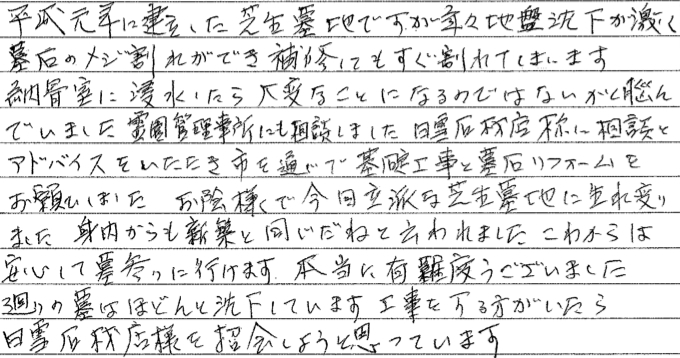 平成元年に建立した芝生墓地ですが年々地盤沈下が激しく
墓石のメジ割れができ補修してもすぐ割れてしまいます
納骨室に浸水したら大変なことになるのではないかと悩ん
でいました霊園管理事務所にも相談しました白雲石材店様に相談と
アドバイスをいただき市を通じて基礎工事と墓石リフォームを
お願いしました お陰様で今回立派な芝生墓地に生れ変り
ました 身内からも新築と同じだねと云われました これからは
安心して墓参りに行けます 本当に有難度うございました
廻りの墓はほどんと沈下しています 工事をする方がいたら
白雲石材店様を紹介しようと思っています